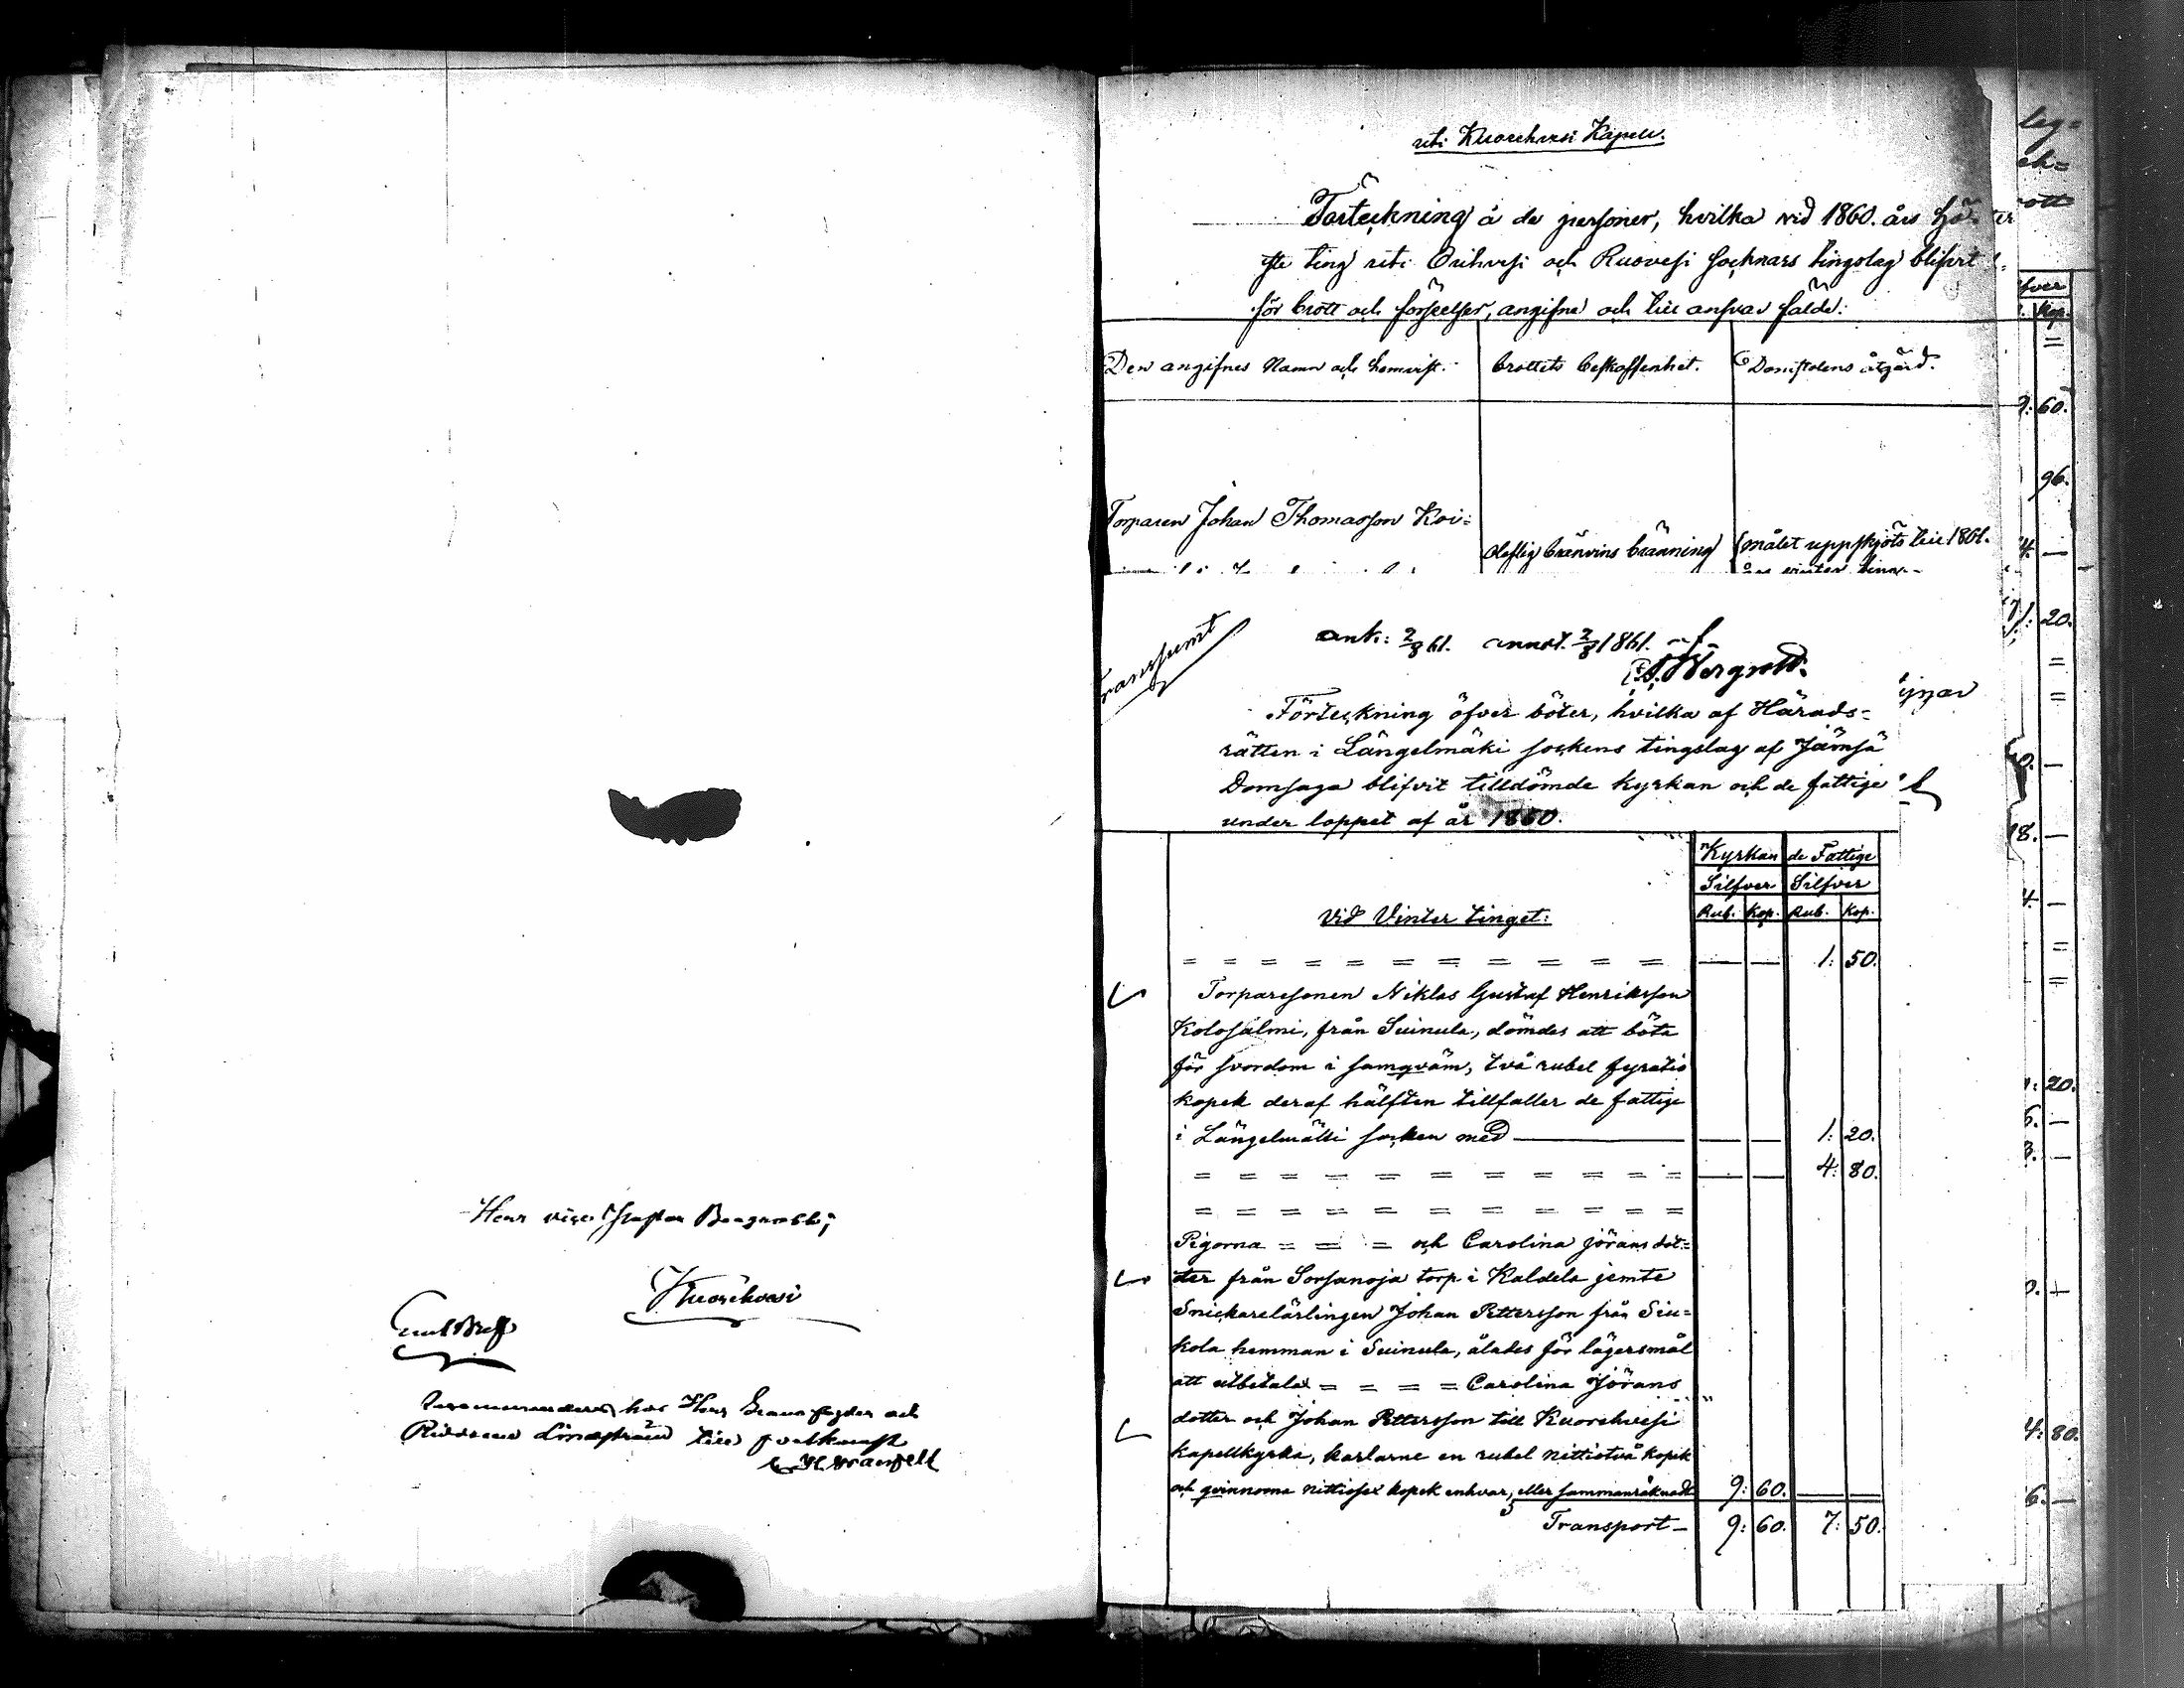 Herr vice Pastor Bergroth,
Kuorehvesi
Recommenderas hos Herr Kronofogden och
Riddaren Lindström till
uti Kuorehvesi Kapell.
Förteckning å de personer, hvilka vid 1860. års hö
ste ting uti Orihvesi och Ruovesi socknars tingslag blifvit
för brott och förseelser, angifne och till ansvar fälde:
Den angifnes Namn och hemvist. Brottets beskaffenhet. Domstolens åtgärd.
Torparen Johan Thomasson Koi=
Oloflig bränvins bränning målet uppskjöts till 1861.
års vinter ting
Transsumt
ank: 2/8 61. annot. 2/8 1861.
Bergroth.
Förteckning öfver böter, hvilka af Härads=
rätten i Längelmäki sockens tingslag af Jämsä
Domsaga blifvit tilldömde kyrkan och de fattige
under loppet af år 1860.
Kyrkan de Fattige
Silfver Silfver
Rub. Kop. Rub. Kop.
Vid Vinter tinget:
= = = = = = = = = = = = — — 1: 50.
Torparesonen Niklas Gustaf Henriksson
Kolosalmi, från Suinula, dömdes att böta
för svordom i samqväm, två rubel fyratio
kopek deraf hälften tillfaller de fattige
i Längelmäki socken med — — — 1: 20.
= = = = = = = = = = = = — — 4: 80.
= = = = = = = = = = = =
Pigorna = = = och Carolina Jörans dot=
ter från Sorsanoja torp i Kaldela jemte
Snickarelärlingen Johan Pettersson från Siu=
kola hemman i Suinula, ålades för lägersmål
att utbetala = = = = Carolina Jörans
dotter och Johan Pettersson till Kuorehvesi
kapellkyrka, karlarne en rubel nittiotvå kopek
och qvinnorna nittiosex kopek enhvar, eller sammanräknadt 9: 60. — —
Transport — 9: 60. 7: 50.